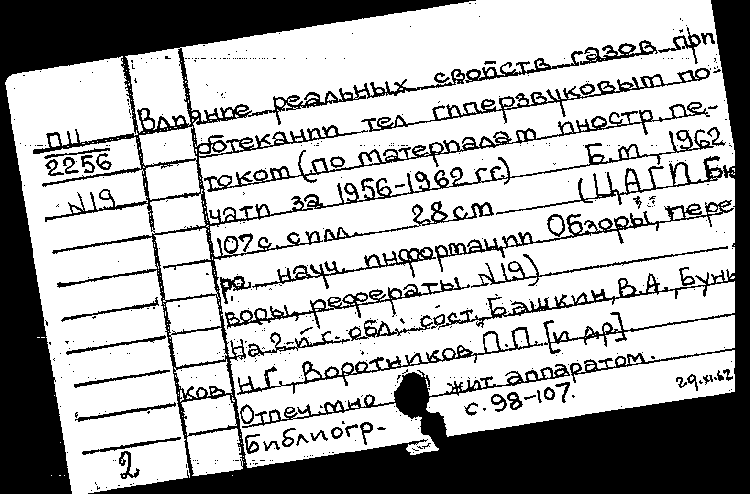 П11
2256
N19
Влияние реальных свойств газов при
обтекании тел гиперзвуковым по-
током (по материалам иностр. пе-
чати за 1956-1962 гг.) Б.м., 1962
107 с. с илл. 28 см (ЦАГИ. Бю
ро науч. информации. Обзоры, пере
воды, рефераты. N19)
На 2-й с. обл.: сост. Башкин, В.А., Бунь
ков Н.Г., Воротников, П.П. [и др].
Отпеч. мно жит. аппаратом.
Библиогр. с. 98-107.
29.XI.62
2